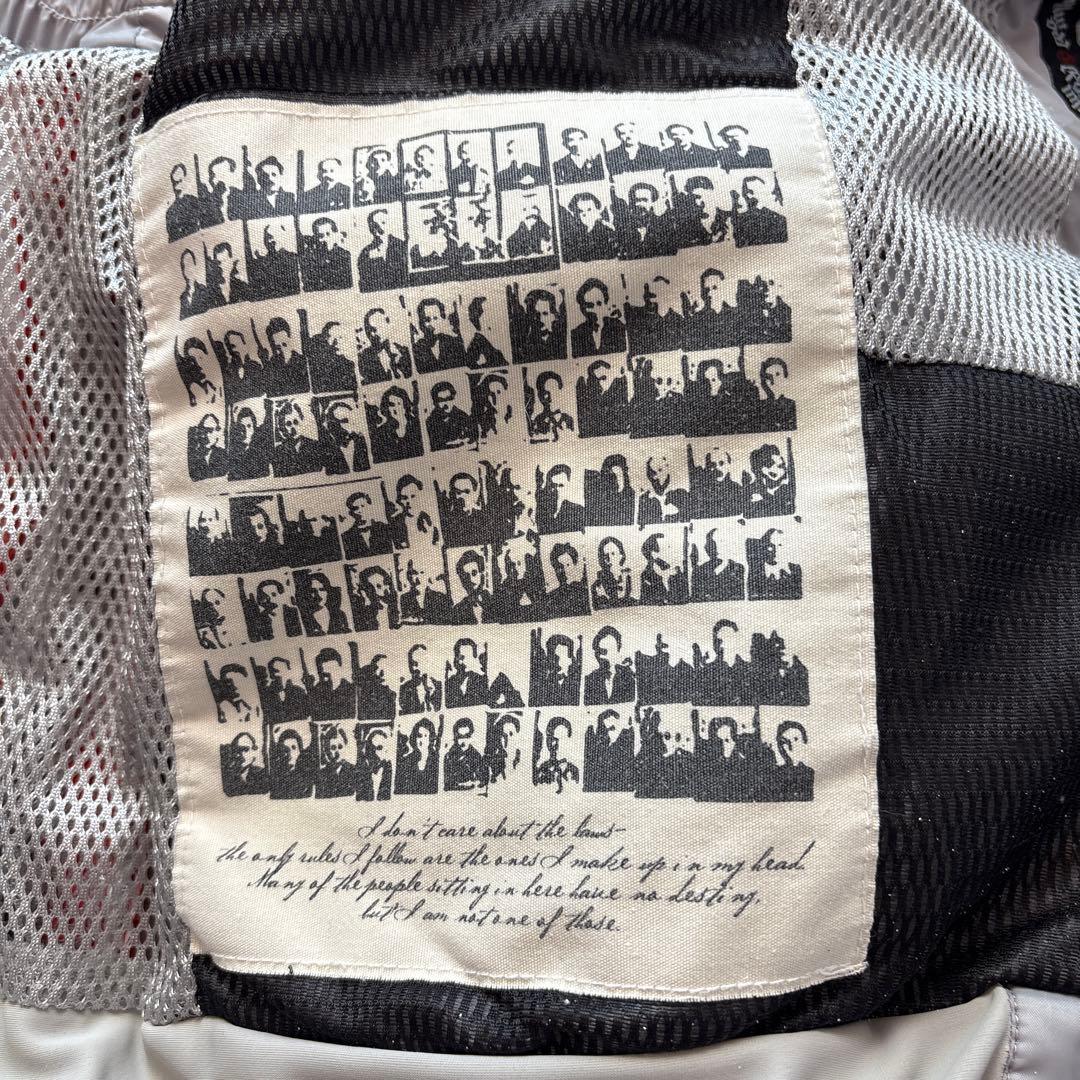 I don't care about the laws
the only rules I follow are the ones I make up in my head.
Many of the people sitting in here have no destiny,
but I am not one of those.